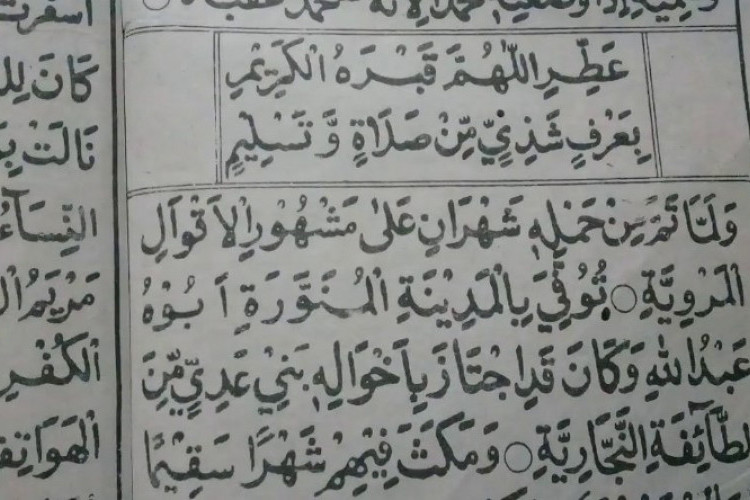 عَطِّرِ اللّٰهُمَّ قَبْرَهُ الْكَرِيْمِ
بِعَرْفٍ شَذِيٍّ مِّنْ صَلَاةٍ وَّ تَسْلِيْمٍ
وَلَمَّا تَمَّ مِنْ حَمْلِهٖ شَهْرَانِ عَلٰى مَشْهُوْرِ الْاَقْوَالِ
الْمَرْوِيَّةِ ○ تُوُفِّيَ بِالْمَدِيْنَةِ الْمُنَوَّرَةِ اَبُوْهُ
عَبْدُ اللهِ وَكَانَ قَدِ اجْتَازَ بِاَخْوَالِهٖ بَنِيْ عَدِيٍّ مِّنَ
الطَّآئِفَةِ النَّجَّارِيَّةِ ○ وَمَكَثَ فِيْهِمْ شَهْرًا سَقِيْمًا
كَانَ لِلّٰ
نَالَتْ بِ
النِّسَآءُ
مَرْيَمُ ال
الْكُفْرِ
الْهَوَاتِفُ